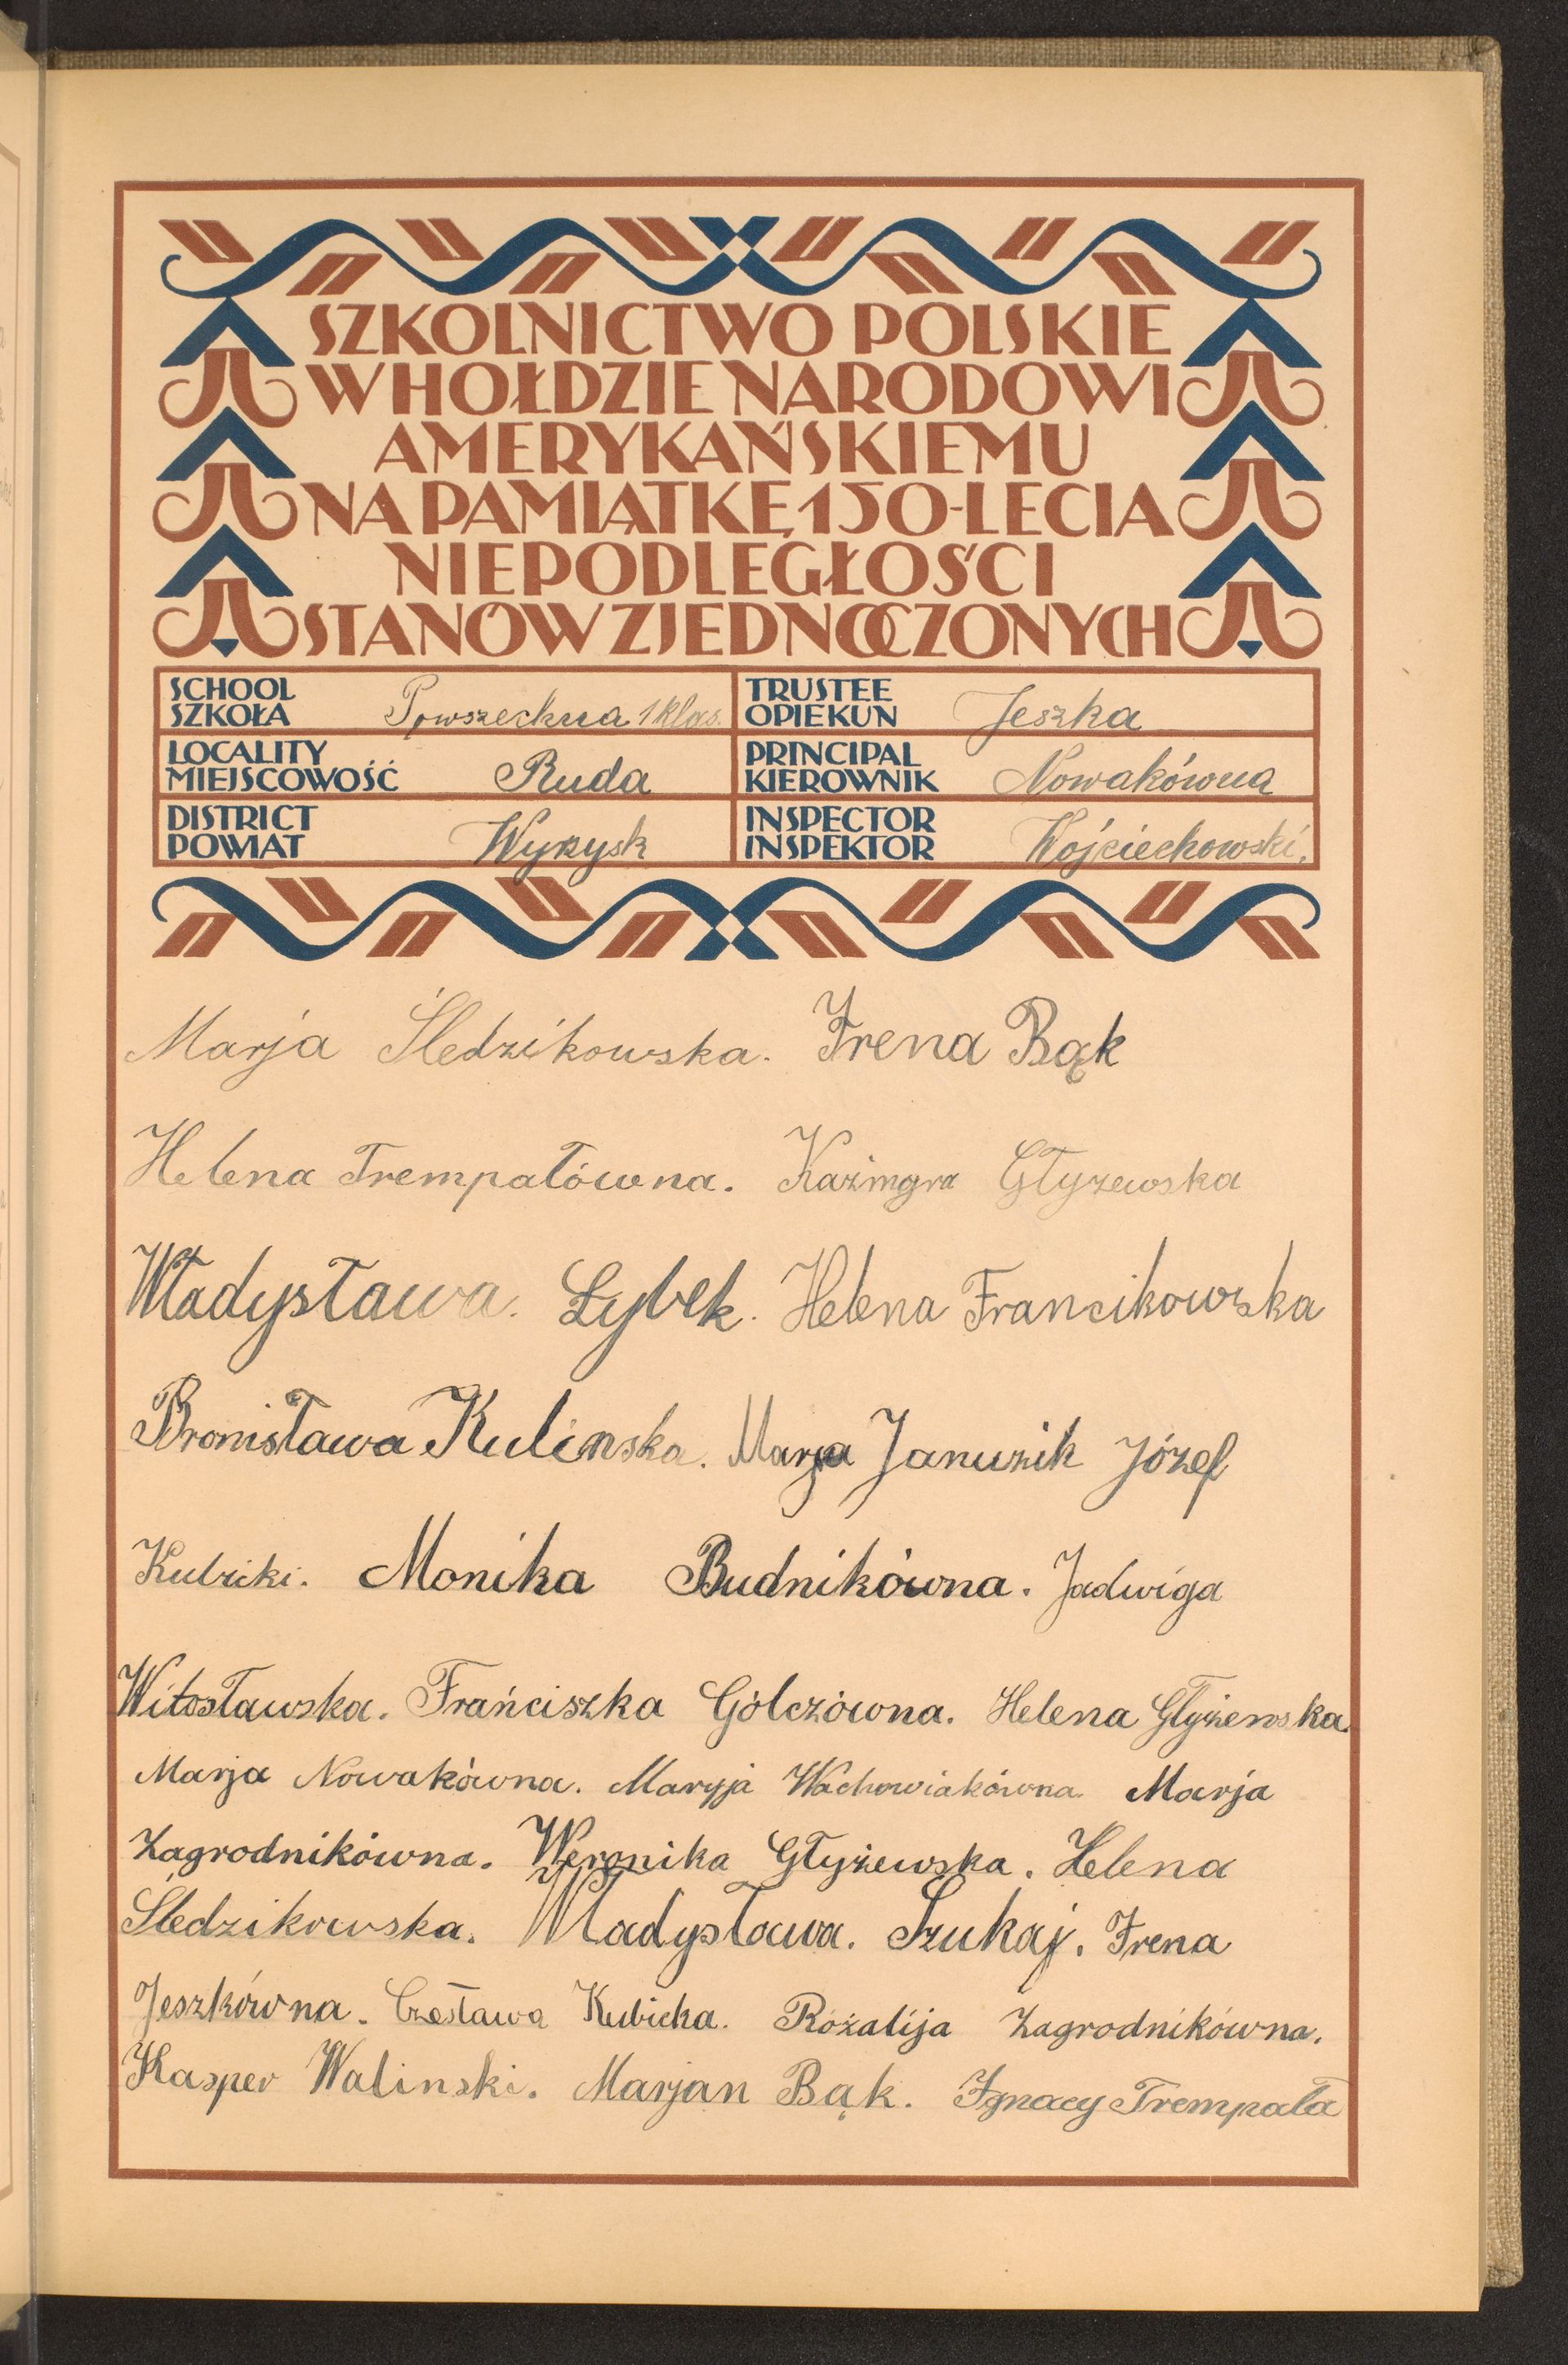 SZKOLNICTWO POLSKIE
W HOŁDZIE NARODOWI
AMERYKAŃSKIEMU
NA PAMIĄTKĘ 150-LECIA
NIEPODLEGŁOŚCI
STANÓW ZJEDNOCZONYCH
SCHOOL
SZKOŁA Powszechna 1 klas.
TRUSTEE
OPIEKUN Jeszka
LOCALITY
MIEJSCOWOŚĆ Ruda
PRINCIPAL
KIEROWNIK Nowakówna
DISTRICT
POWIAT Wyrzysk
INSPECTOR
INSPEKTOR Wojciechowski.
Marja Śledzikowska. Irena Bąk
Helena Trempałówna. Kaźmgra Głyzewska
Władysława. Łybek. Helena Francikowska
Bronisława Kulinska. Marja Januzik Józef
Kubicki. Monika Budnikówna. Jadwiga
Witosławska. Frańciszka Gólczówna. Helena Głyżewska.
Marja Nowakówna. Maryja Wachowiakówna. Marja
Zagrodnikówna. Weronika Głyżewska. Helena
Śledzikowska. Władysława. Szukaj. Irena
Jeszkówna. Czesława Kubicka. Rozalija Zagrodnikówna.
Kasper Walinski. Marjan Bąk. Ignacy Trempała